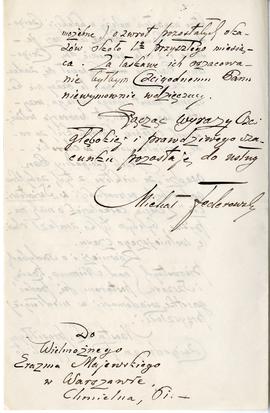 możebne, o zwrot pozostałych oka-
zów około 1go przyszłego miesią-
ca. Za łaskawe ich oszacowa-
nie byłbym Czcigodnemu Panu
niewymownie wdzięczny.
Łącząc wyrazy Czci
głębokiej i prawdziwego sza-
cunku pozostaję do usług
Michał Federowski
Do
Wielmożnego
Erazma Majewskiego
w Warszawie.
Chmielna, 61.—